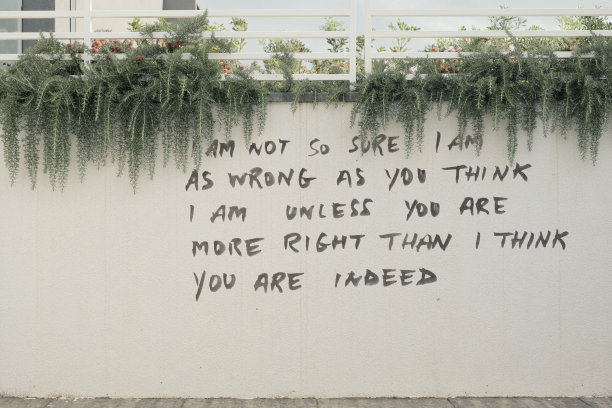 I AM NOT SO SURE I AM
AS WRONG AS YOU THINK
I AM UNLESS YOU ARE
MORE RIGHT THAN I THINK
YOU ARE INDEED